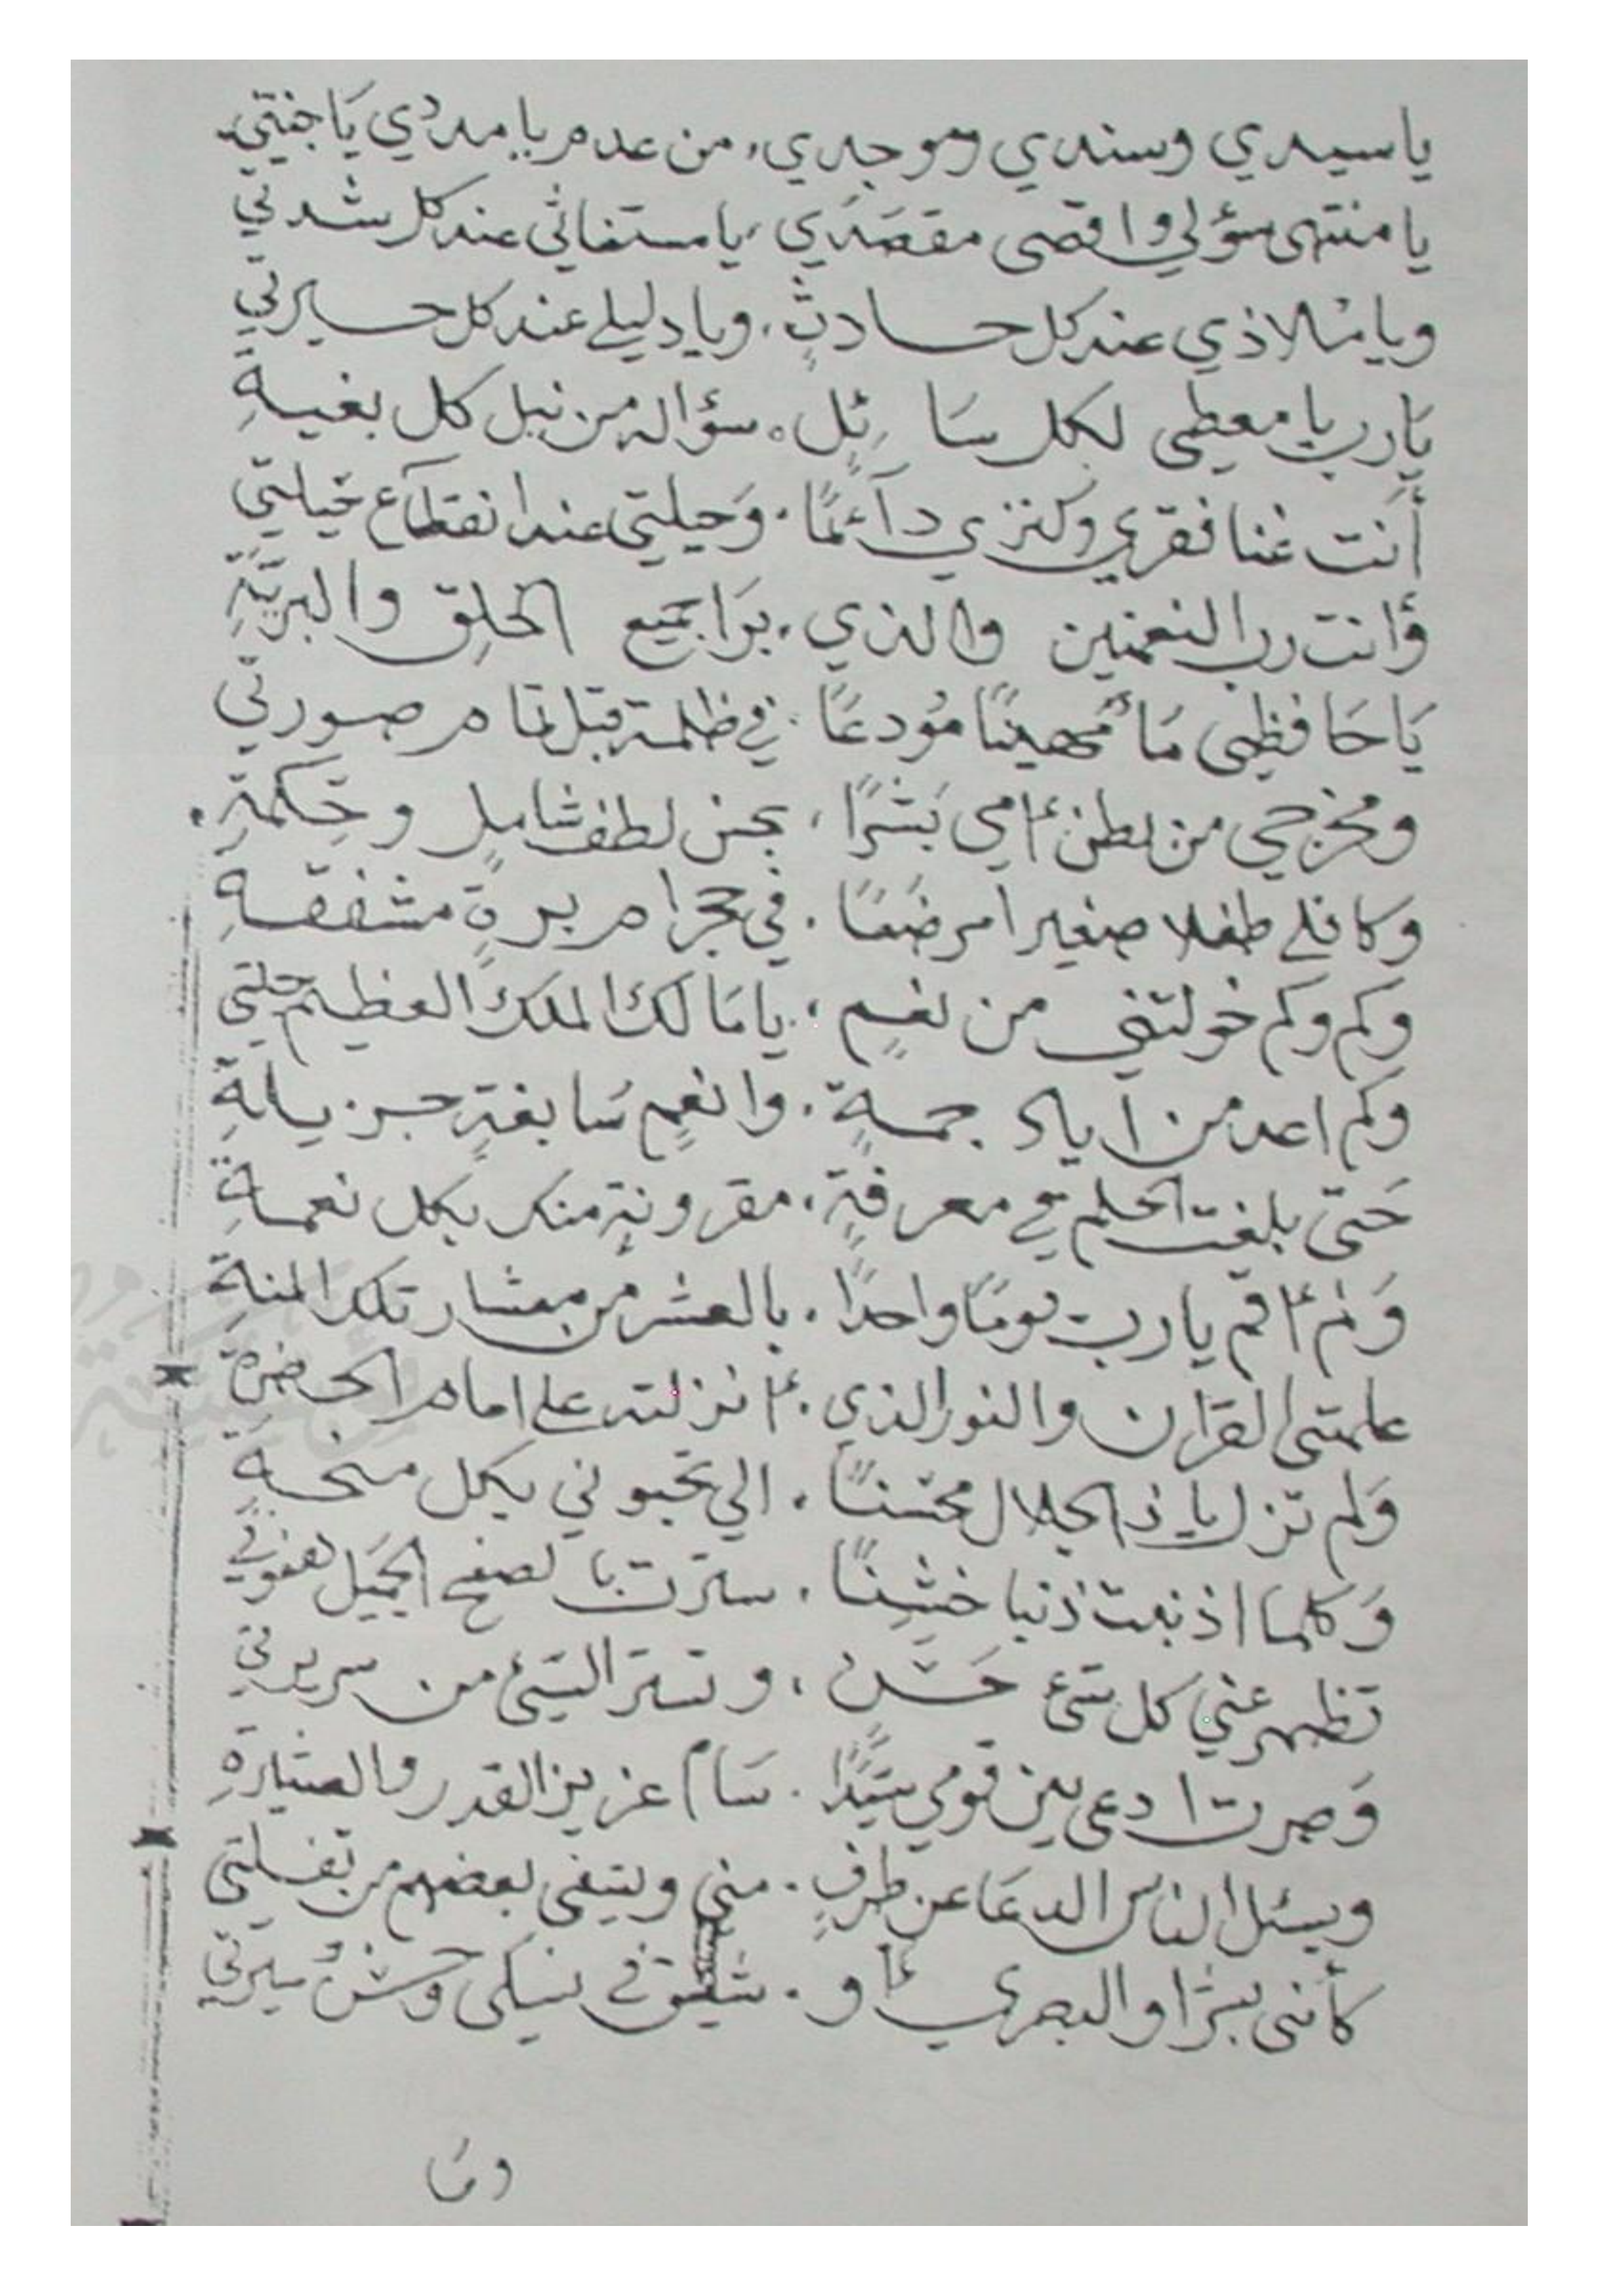 يا سيدي وسندي وموجدي، من عدم يا مددي يا جنتي
يا منتهى سؤلي واقصى مقصدي، يا مستغاثي عند كل شدتي
ويا ملاذي عند كل حادثٍ، ويا دليلي عند كل حيرتي
يَا رب يا معطي لكل سَائِلٍ، سؤاله من نيل كل بغيةِ
أنت غنا فقري وكنزي دآئمًا، وَحيلتي عند انقطاع حيلتي
وَانت رب النعمتين والذي، بَرَا جميع الخلق والبريّةِ
يَا حَافظي مَاً مُهينًا مُودعًا، في ظلمة قبل تمام صورتي
ومخرجي من بطن أمي بَشَرًا، بحسن لطف شاملٍ وحِكمةِ
وكافلي طفلا صغيرا مرضَعًا، في حجر ام برةٍ مشفقةِ
وكم وكم خولتني من نعمٍ، يا مَالك الملك العظيم حلتي
وكم اعد من اياد جمةٍ، وانعمٍ سَابغةٍ جزيلةِ
حَتى بلغت الحلم في معرفةٍ، مقرونةٍ منك بكل نعمةِ
وَلم أقم يا رب يومًا واحدًا، بالعشر من معشار تلك المنةِ
علمتني القرآن والنور الذي، أنزلته على امام الحضرةِ
وَلم تزل يا ذا الجلال محسنًا، الي تحبوني بكل منحةٍ
وَكلما اذنبت ذنبا خشِنًا، سترت بالصفح الجميَل هفوتي
تظهر عني كل شئ حَسَنٍ، وتستر السيئ من سريرتي
وَصرت ادعى بين قومي سَيّدًا، سَامٍ عزيز القدر والستيرةِ
ويسئل الناس الدعَا عن طرفٍ، مني ويبتغي بعضهم من تفلتي
كأنني بشرًا والبصري أو، شقيق في نسكي وحسْن سيرتي
ومَا